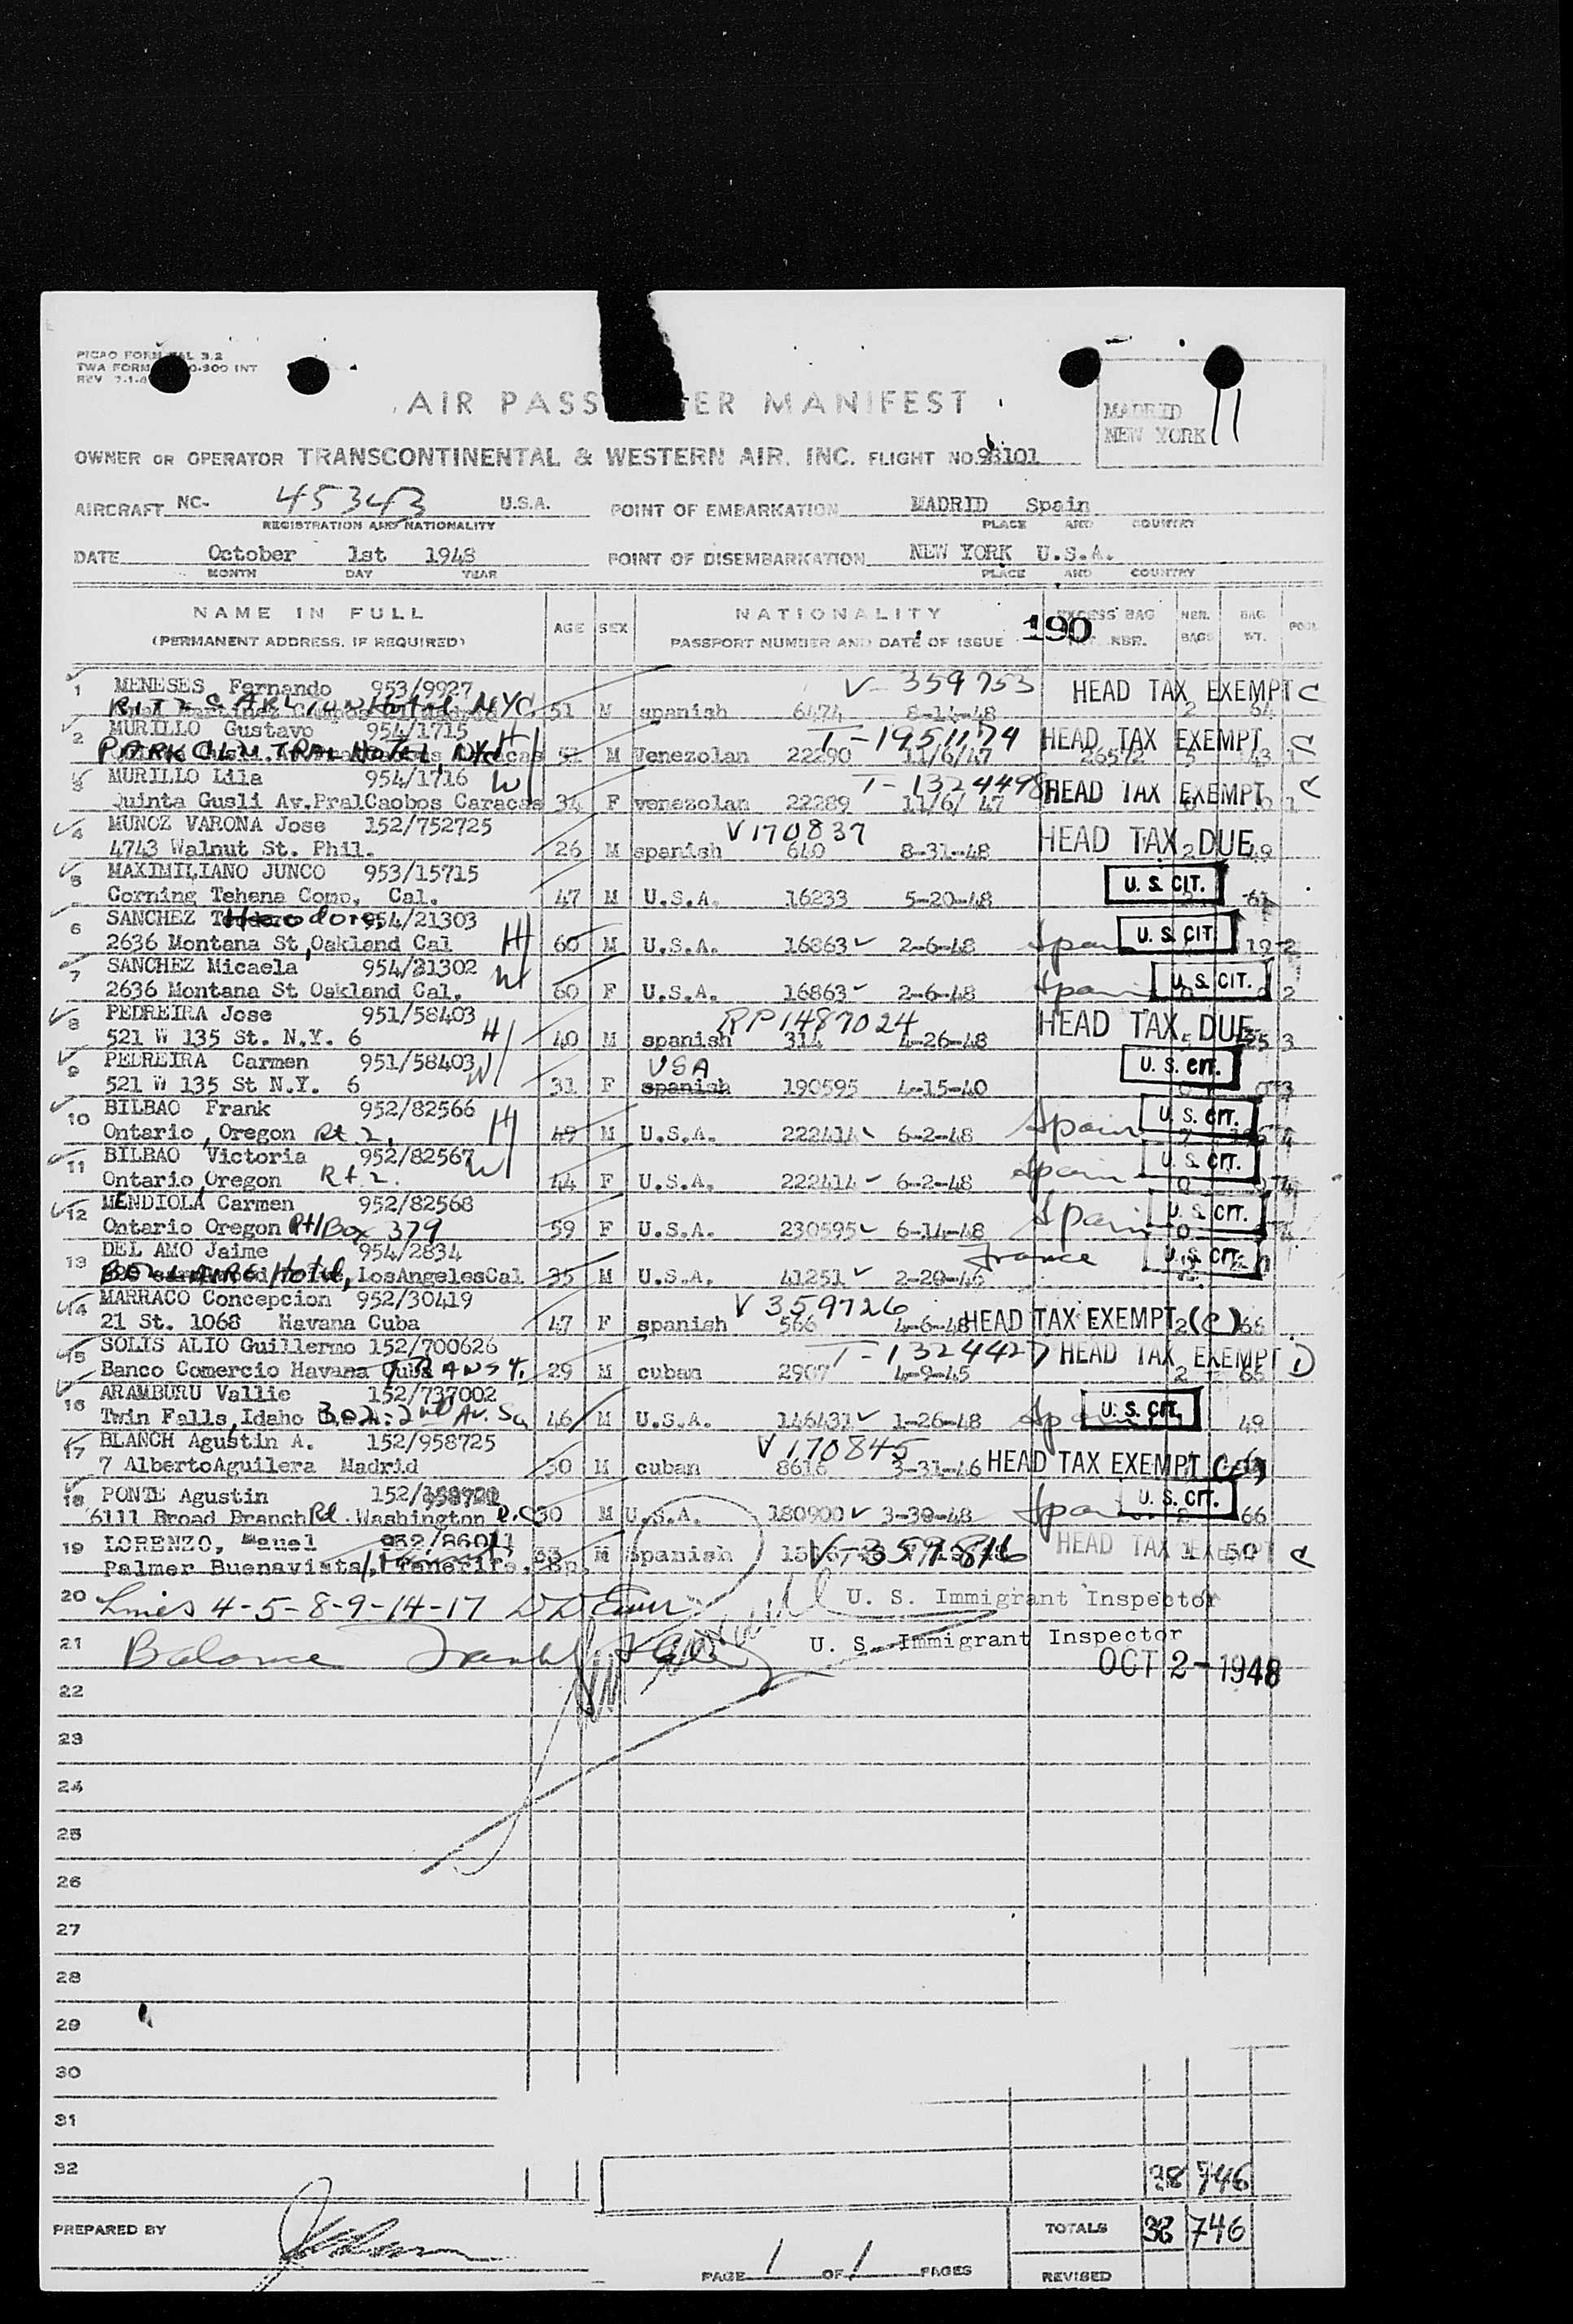 PICAO FORM 3.2
TWA FORM 0-300 INT
REV 7-1-4
AIR PASS ER MANIFEST
MADRID
NEW YORK 11
OWNER OR OPERATOR TRANSCONTINENTAL & WESTERN AIR. INC. FLIGHT NO. 101
AIRCRAFT NC- 45343 U.S.A. POINT OF EMBARKATION MADRID Spain
REGISTRATION AND NATIONALITY PLACE AND COUNTRY
DATE October 1st 1948 POINT OF DISEMBARKATION NEW YORK U.S.A.
MONTH DAY YEAR PLACE AND COUNTRY
NAME IN FULL AGE SEX NATIONALITY 190 EXCESS BAG NBR. BAG POOL
(PERMANENT ADDRESS. IF REQUIRED) PASSPORT NUMBER AND DATE OF ISSUE NBR. BAGS WT.
1 MENESES Fernando 953/9927 V-359753 HEAD TAX EXEMPT C
RITZ CARLTON Hotel NYC 51 M spanish 6474 8-14-48 2 64
2 MURILLO Gustavo 954/1715 H T-1951174 HEAD TAX EXEMPT C
PARK CENTRAL HOTEL, NYC 51 M Venezolan 22290 11/6/47 26572 5 43 1
3 MURILLO Lila 954/1716 W T-1324498 HEAD TAX EXEMPT C
Quinta Gusli Av.PralCaobos Caracas 34 F venezolan 22289 11/6/ 47 0 0 1
4 MUNOZ VARONA Jose 152/752725 V170837 HEAD TAX DUE
4743 Walnut St. Phil. 26 M spanish 640 8-31-48 2 49
5 MAXIMILIANO JUNCO 953/15715 U. S. CIT.
Corning Tehena Comp, Cal. 47 M U.S.A. 16233 5-20-48
6 SANCHEZ Theodore 954/21303 H U. S. CIT.
2636 Montana St, Oakland Cal 60 M U.S.A. 16863 2-6-48 Spain 2
7 SANCHEZ Micaela 954/21302 W U. S. CIT.
2636 Montana St Oakland Cal. 60 F U.S.A. 16863 2-6-48 Spain 0 2
8 PEDREIRA Jose 951/58403 H RP1487024 HEAD TAX DUE
521 W 135 St. N.Y. 6 40 M spanish 314 4-26-48 5 3
9 PEDREIRA Carmen 951/58403 W USA U. S. CIT.
521 W 135 St N.Y. 6 31 F spanish 190595 4-15-40 0 0 3
10 BILBAO Frank 952/82566 H U. S. CIT.
Ontario, Oregon Rt 2, 49 M U.S.A. 222414 6-2-48 Spain 7 4
11 BILBAO Victoria 952/82567 W U. S. CIT.
Ontario, Oregon Rt. 2. 44 F U.S.A. 222414 6-2-48 Spain 0 4
12 MENDIOLA Carmen 952/82568 U. S. CIT.
Ontario Oregon Rt1 Box 379 59 F U.S.A. 230595 6-14-48 Spain 0 4
13 DEL AMO Jaime 954/2834 France U. S. CIT.
BEL AIRE Hotel, LosAngelesCal 35 M U.S.A. 41251 2-20-46
14 MARRACO Concepcion 952/30419 V 359726 HEAD TAX EXEMPT (C)
21 St. 1068 Havana Cuba 47 F spanish 566 4-6-48 2 66
15 SOLIS ALIO Guillermo 152/700626 T-1324427 HEAD TAX EXEMPT D
Banco Comercio Havana Cuba TRANST. 29 M cuban 2907 4-9-45 2 66
16 ARAMBURU Vallie 152/737002 U. S. CIT.
Twin Falls, Idaho 2nd Av. So 46 M U.S.A. 146431 1-26-48 Spain 49
17 BLANCH Agustin A. 152/958725 V170845 HEAD TAX EXEMPT
7 AlbertoAguilera Madrid 50 M cuban 8616 3-31-46
18 PONTE Agustin 152/ U. S. CIT.
6111 Broad Branch Rd. Washington D.C 30 M U.S.A. 180900 3-30-48 Spain 66
19 LORENZO, Manuel 952/86011 V-359816 HEAD TAX EXEMPT C
Palmer Buenavista, Tenerife, Sp. M spanish 1 50
20 Lines 4-5-8-9-14-17 U. S. Immigrant Inspector
21 Balance Frank U. S. Immigrant Inspector
OCT 2-1948
22
23
24
25
26
27
28
29
30
31
32 38 746
PREPARED BY TOTALS 38 746
PAGE 1 OF 1 PAGES REVISED